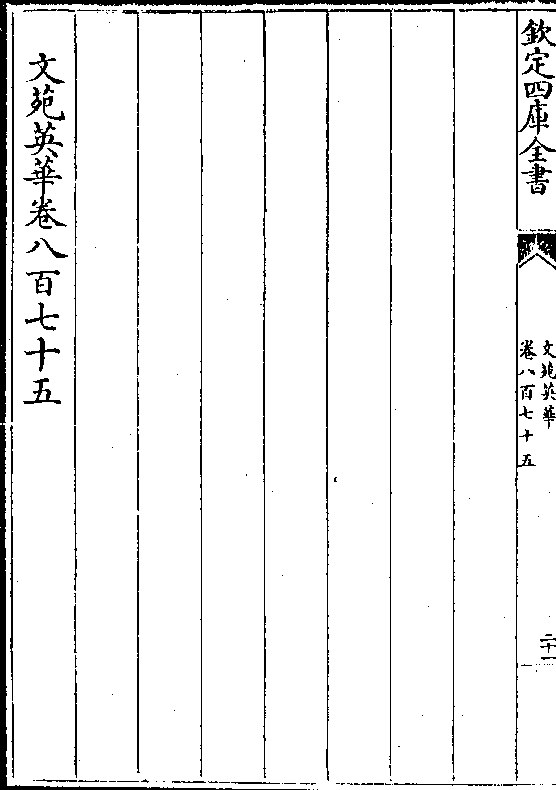 欽定四庫全書
文苑英華
卷八百七十五
二十一
文苑英華卷八百七十五